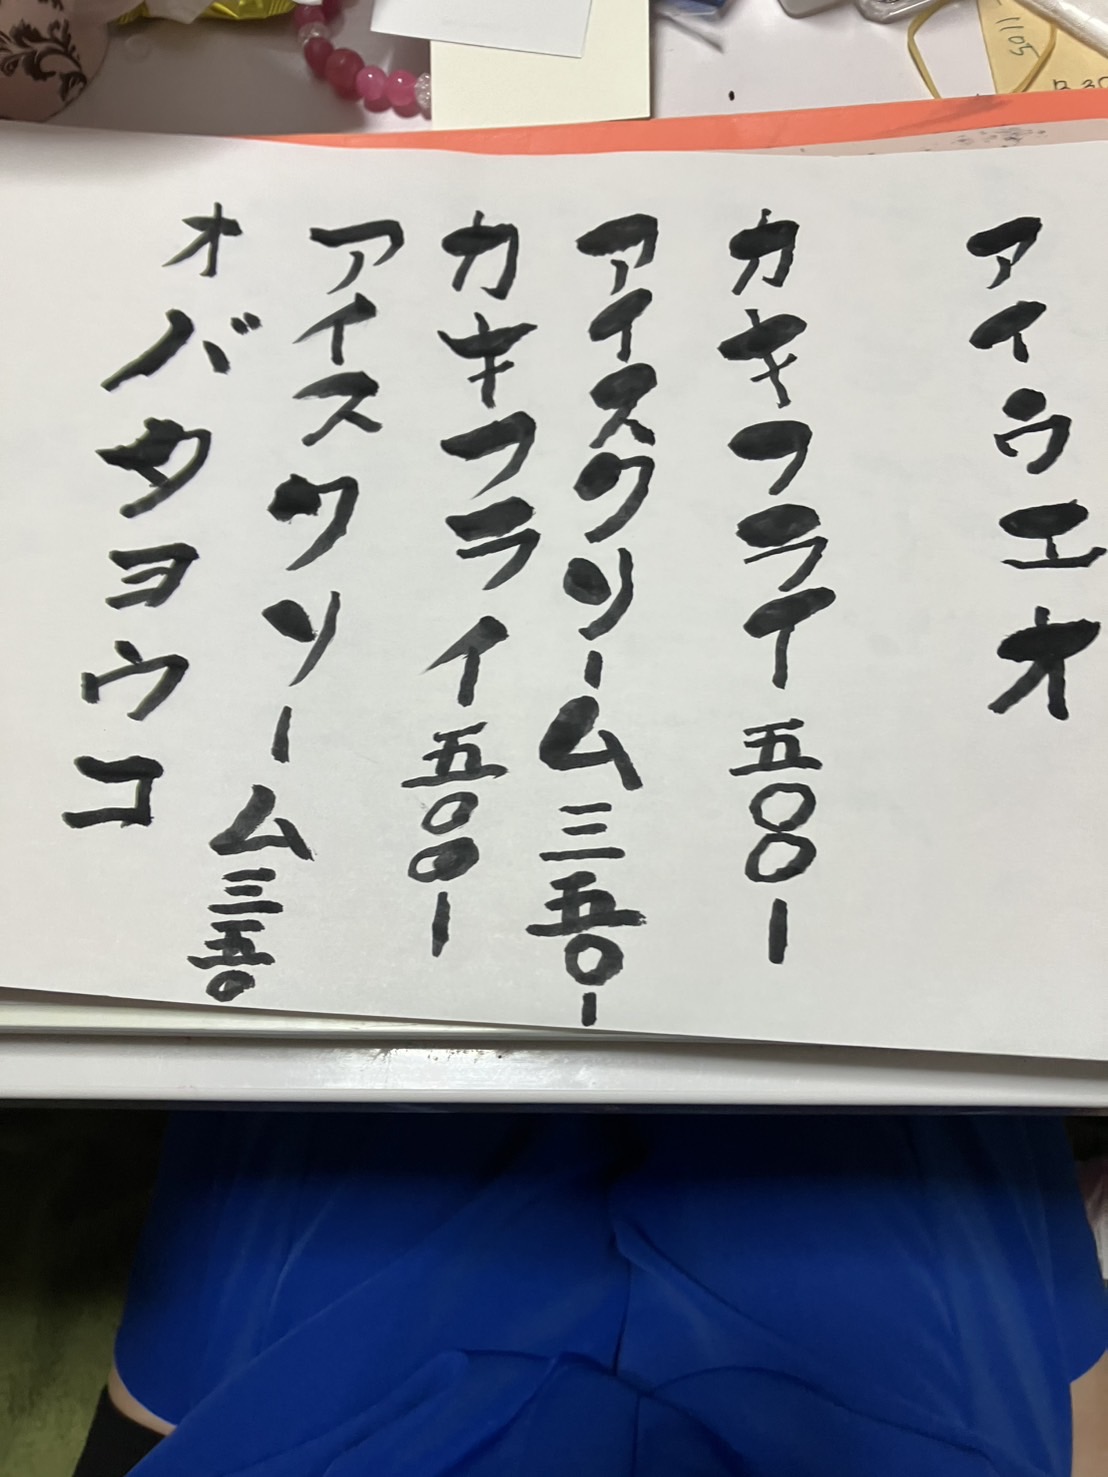 アイウエオ
カキフライ五〇〇ー
アイスクリーム三五〇ー
カキフライ五〇〇ー
アイスクリーム三五〇
オバタヨウコ
1105